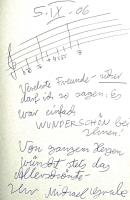 5. IX. 06
Verehrte Freunde - sicher
darf ich so sagen: Es
war einfach
WUNDERSCHÖN bei
Ihnen!
Von ganzem Herzen
wünscht stets das
Allerschönste -
Ihr Michael